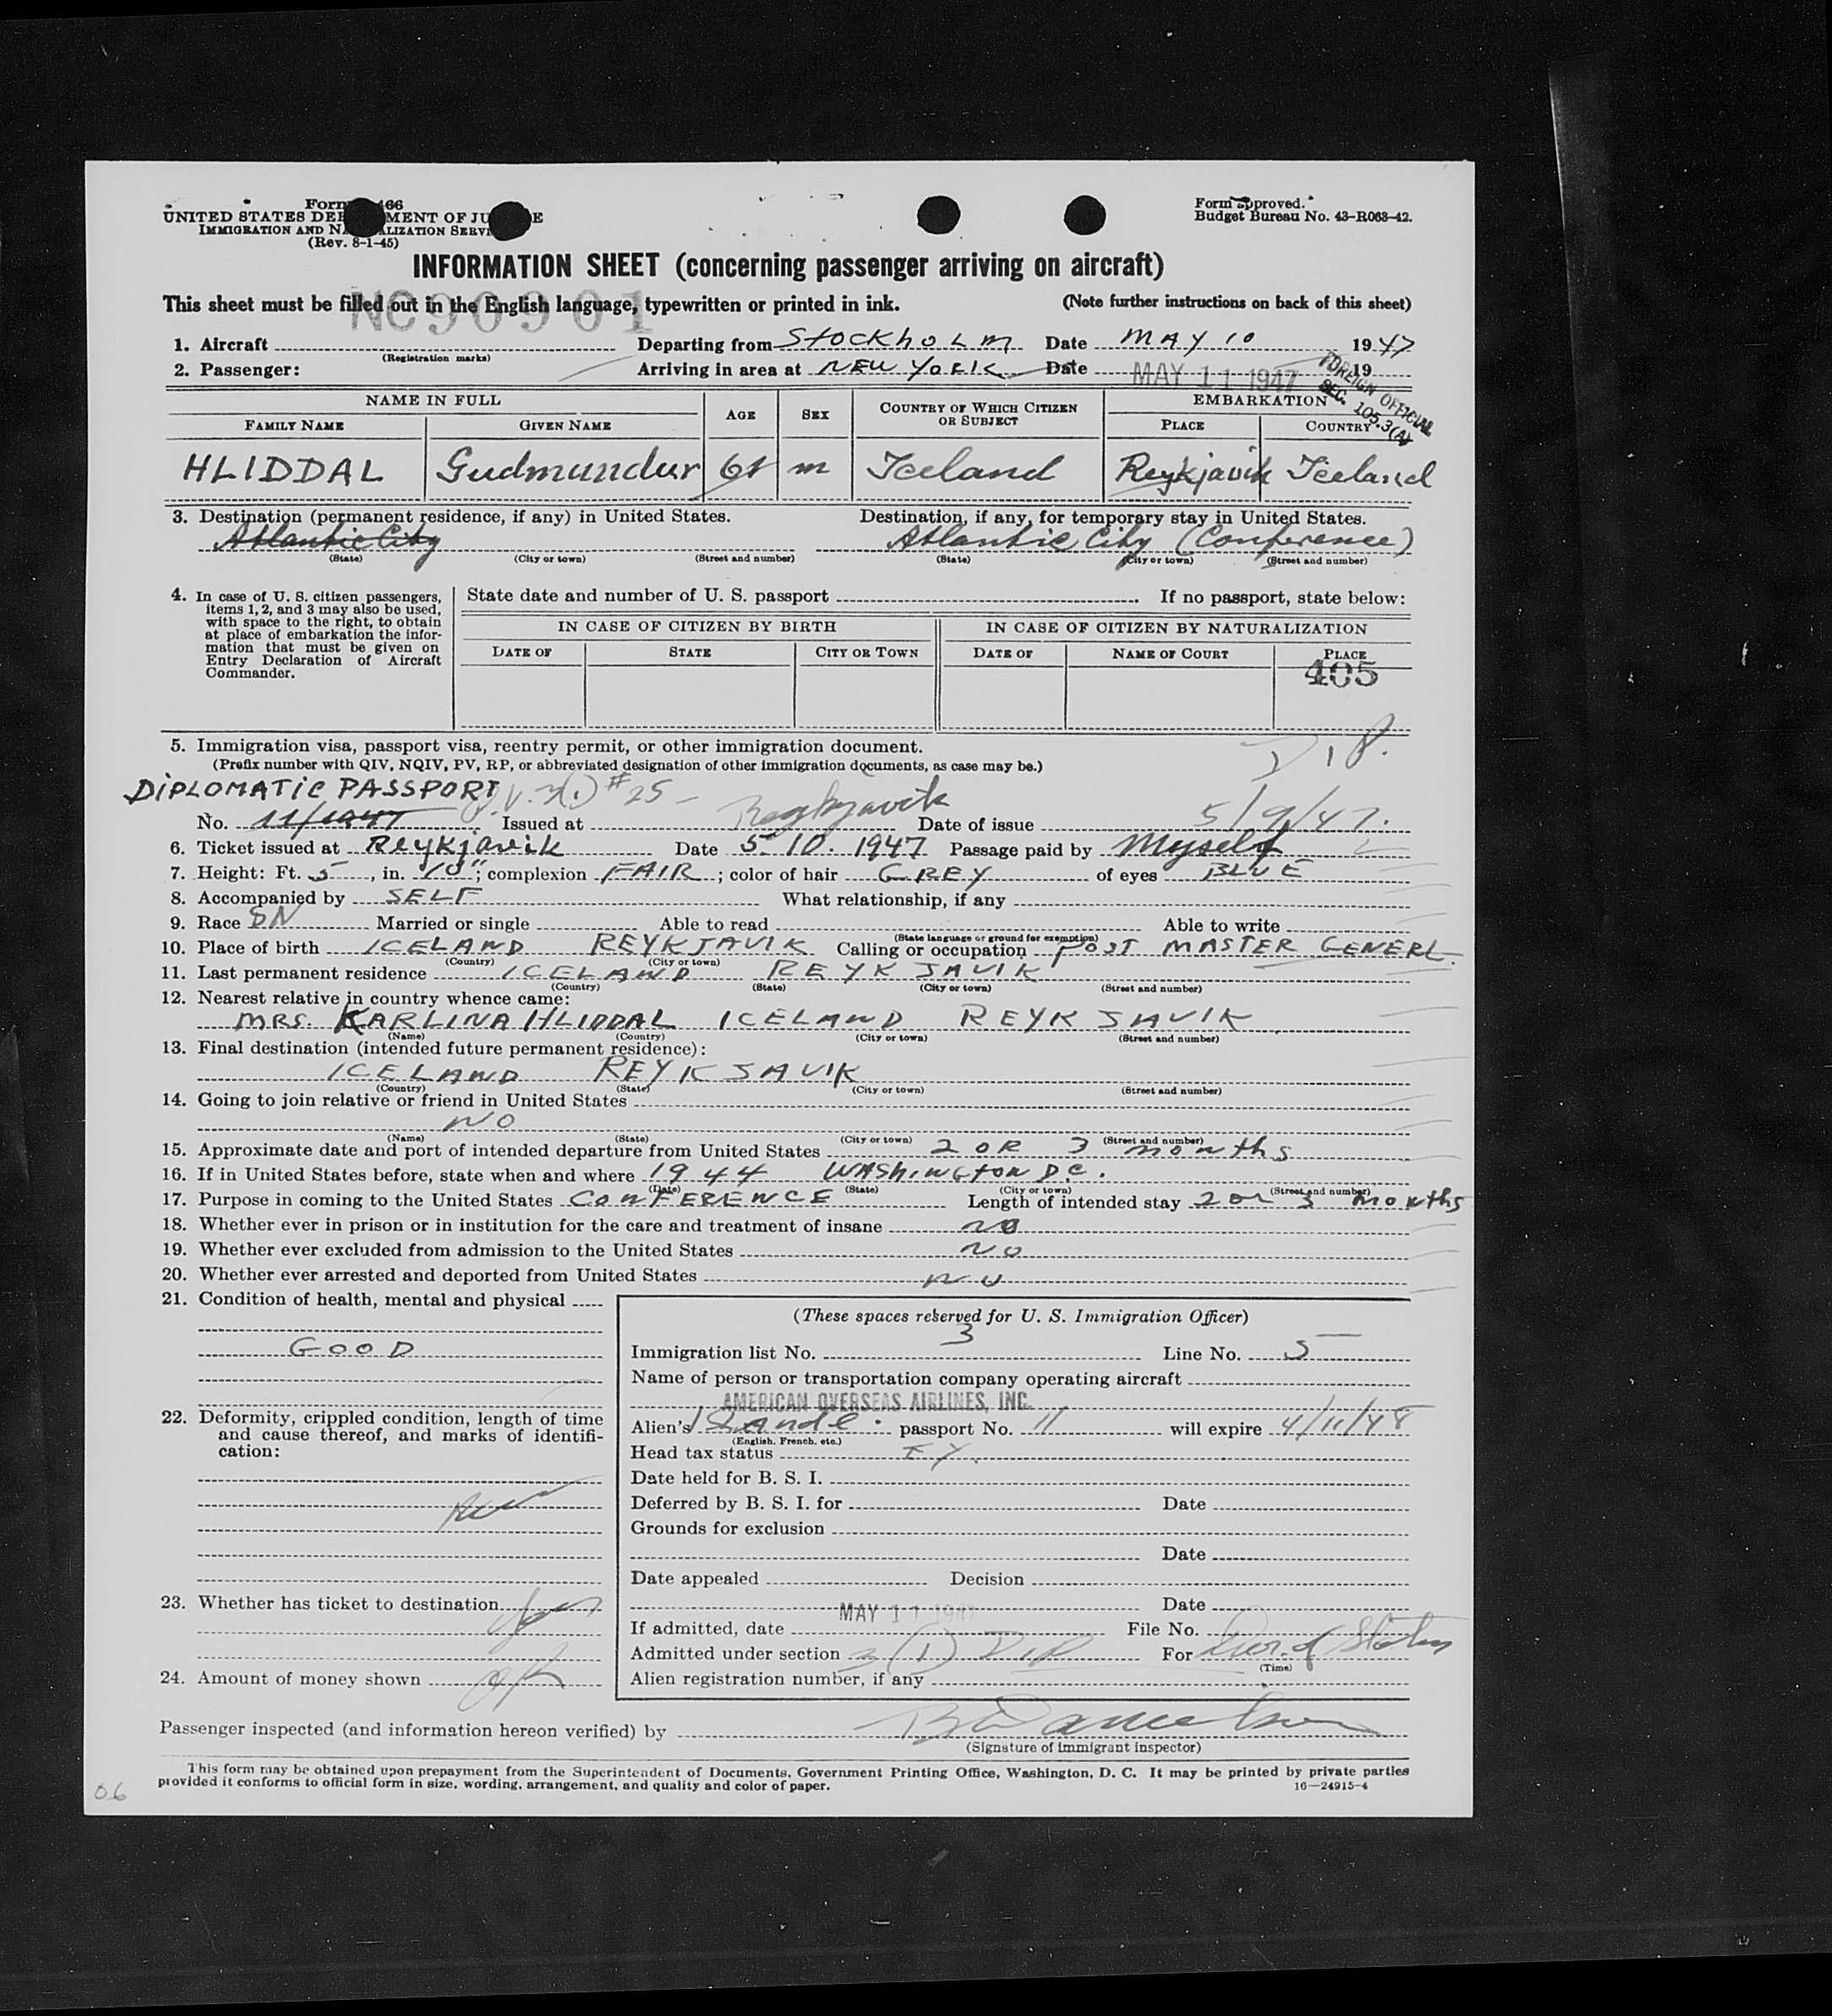 Form 466
UNITED STATES DEPARTMENT OF JUSTICE
IMMIGRATION AND NATURALIZATION SERVICE
(Rev. 8-1-45)
Form approved.
Budget Bureau No. 43-R063-42.
INFORMATION SHEET (concerning passenger arriving on aircraft)
This sheet must be filled out in the English language, typewritten or printed in ink. (Note further instructions on back of this sheet)
NC90901
1. Aircraft (Registration marks) Departing from Stockholm Date MAY 10 1947
2. Passenger: Arriving in area at NEW YORK Date MAY 11 1947 19
FOREIGN OFFICIAL
SEC. 105.3(A)
NAME IN FULL AGE SEX COUNTRY OF WHICH CITIZEN OR SUBJECT EMBARKATION
FAMILY NAME GIVEN NAME PLACE COUNTRY
HLIDDAL Gudmundur 61 m Iceland Reykjavik Iceland
3. Destination (permanent residence, if any) in United States. Destination, if any, for temporary stay in United States.
Atlantic City Atlantic City (Conference)
(State) (City or town) (Street and number) (State) (City or town) (Street and number)
4. In case of U. S. citizen passengers, items 1, 2, and 3 may also be used, with space to the right, to obtain at place of embarkation the information that must be given on Entry Declaration of Aircraft Commander.
State date and number of U. S. passport If no passport, state below:
IN CASE OF CITIZEN BY BIRTH IN CASE OF CITIZEN BY NATURALIZATION
DATE OF STATE CITY OR TOWN DATE OF NAME OF COURT PLACE
405
5. Immigration visa, passport visa, reentry permit, or other immigration document.
(Prefix number with QIV, NQIV, PV, RP, or abbreviated designation of other immigration documents, as case may be.)
Dip.
DIPLOMATIC PASSPORT P.V. 3(1) #25 - Reykjavik
No. 11/1947 Issued at Date of issue 5/9/47.
6. Ticket issued at Reykjavik Date 5. 10. 1947 Passage paid by Myself
7. Height: Ft. 5, in. 10"; complexion FAIR; color of hair GREY of eyes BLUE
8. Accompanied by SELF What relationship, if any
9. Race DN Married or single Able to read Able to write
(State language or ground for exemption)
10. Place of birth ICELAND REYKJAVIK Calling or occupation POST MASTER GENERL.
(Country) (City or town)
11. Last permanent residence ICELAND REYKJAVIK
(Country) (State) (City or town) (Street and number)
12. Nearest relative in country whence came:
MRS. KARLINA HLIDDAL ICELAND REYKJAVIK
(Name) (Country) (City or town) (Street and number)
13. Final destination (intended future permanent residence):
ICELAND REYKJAVIK
(Country) (State) (City or town) (Street and number)
14. Going to join relative or friend in United States
NO
(Name) (State) (City or town) (Street and number)
15. Approximate date and port of intended departure from United States 2 OR 3 months
16. If in United States before, state when and where 1944 WASHINGTON D.C.
(Date) (State) (City or town) (Street and number)
17. Purpose in coming to the United States CONFERENCE Length of intended stay 2 or 3 months
18. Whether ever in prison or in institution for the care and treatment of insane no
19. Whether ever excluded from admission to the United States NO
20. Whether ever arrested and deported from United States NO
21. Condition of health, mental and physical
GOOD
22. Deformity, crippled condition, length of time and cause thereof, and marks of identification:
23. Whether has ticket to destination yes
24. Amount of money shown OK
(These spaces reserved for U. S. Immigration Officer)
Immigration list No. 3 Line No. 5
Name of person or transportation company operating aircraft
AMERICAN OVERSEAS AIRLINES, INC.
Alien's passport No. 11 will expire 4/11/48
(English, French, etc.)
Head tax status
Date held for B. S. I.
Deferred by B. S. I. for Date
Grounds for exclusion
Date
Date appealed Decision
Date
If admitted, date MAY 11 1947 File No.
Admitted under section 3(1) Dip For Dur. of Status
(Time)
Alien registration number, if any
Passenger inspected (and information hereon verified) by
(Signature of immigrant inspector)
This form may be obtained upon prepayment from the Superintendent of Documents, Government Printing Office, Washington, D. C. It may be printed by private parties
provided it conforms to official form in size, wording, arrangement, and quality and color of paper. 16—24915-4
06